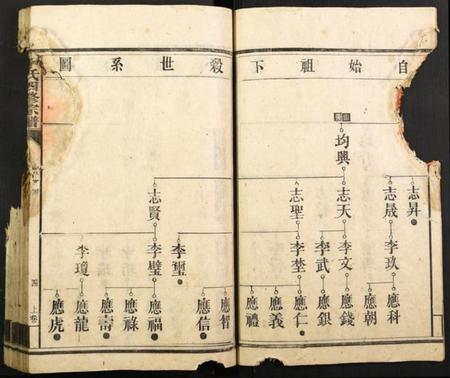 自始祖下榖世系圖
均興
志昇
志晟
志天
志聖
志賢
李玖
李文
李武
李埜
李璽
李璧
李瓊
應科
應朝
應錢
應銀
應仁
應義
應禮
應智
應信
應福
應祿
應壽
應龍
應虎
氏四修宗譜
四
上卷